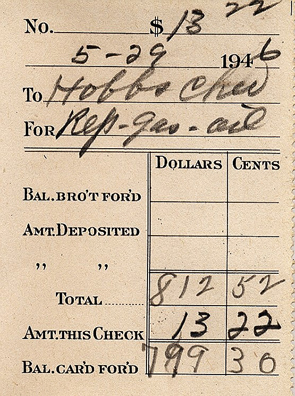 No. $ 13 22
5-29 1946
To Hobbs Chev
For Rep-gas-oil
Dollars Cents
Bal. Bro't For'd
Amt. Deposited
" "
Total 812 52
Amt. This Check 13 22
Bal. Car'd For'd 799 30